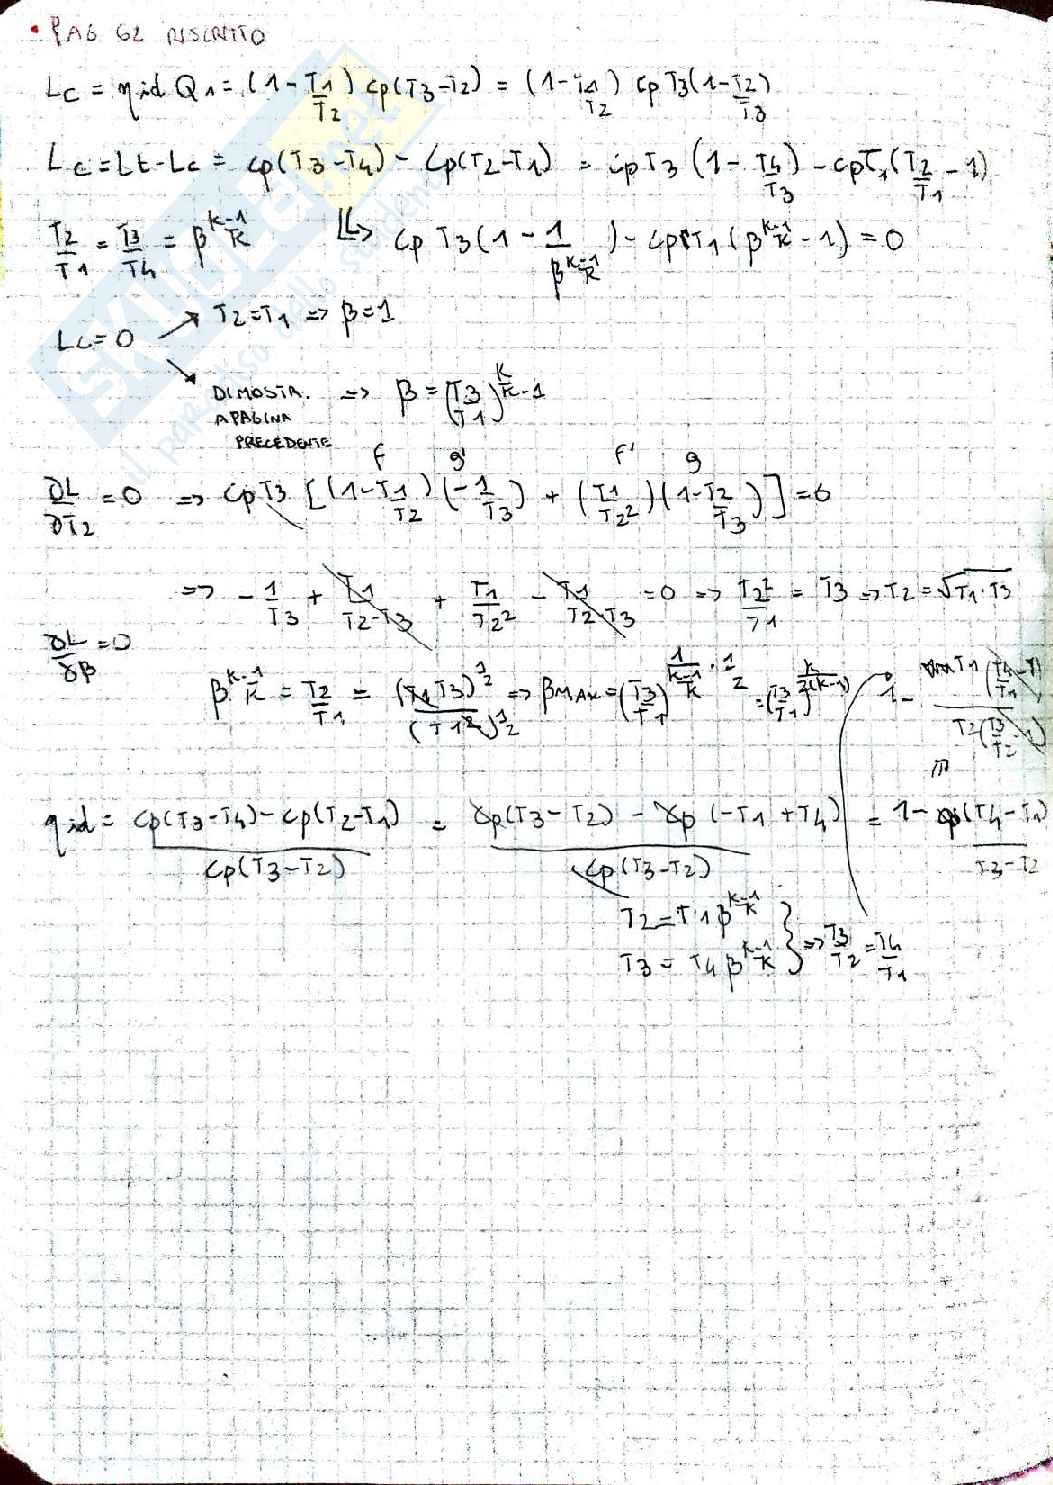 • PAG 62 RISCRITTO
Lc = ηid Q1 = (1 - T1/T2) cp(T3-T2) = (1 - T1/T2) cp T3(1 - T2/T3)
Lc = Lt - Lc = cp(T3-T4) - cp(T2-T1) = cp T3 (1 - T4/T3) - cp T1 (T2/T1 - 1)
T2/T1 = T3/T4 = β^(k-1/k) ↳ cp T3 (1 - 1/β^(k-1/k)) - cp T1 (β^(k-1/k) - 1) = 0
Lc = 0 ↗ T2=T1 => β=1
↘ DIMOSTA. => β = (T3/T1)^(k/k-1)
A PAGINA
PRECEDENTE
f g' f' g
∂L/∂T2 = 0 => cp T3 [(1 - T1/T2)(-1/T3) + (T1/T2²)(1 - T2/T3)] = 0
=> -1/T3 + T1/T2·T3 + T1/T2² - T1/T2·T3 = 0 => T2²/T1 = T3 => T2 = √T1·T3
∂L/∂β = 0
β^(k-1/k) = T2/T1 = (T1 T3)^½/(T1²)^½ => βMAX = (T3/T1)^(1/(k-1/k) · 1/2) = (T3/T1)^(k/2(k-1))
1 - T1 (T4/T1 - 1)/T2 (T3/T2 - 1)
ηid = cp(T3-T4) - cp(T2-T1)/cp(T3-T2) = cp(T3-T2) - cp(-T1+T4)/cp(T3-T2) = 1 - cp(T4-T1)/T3-T2
T2 = T1 β^(k-1/k)
T3 = T4 β^(k-1/k) } => T3/T2 = T4/T1